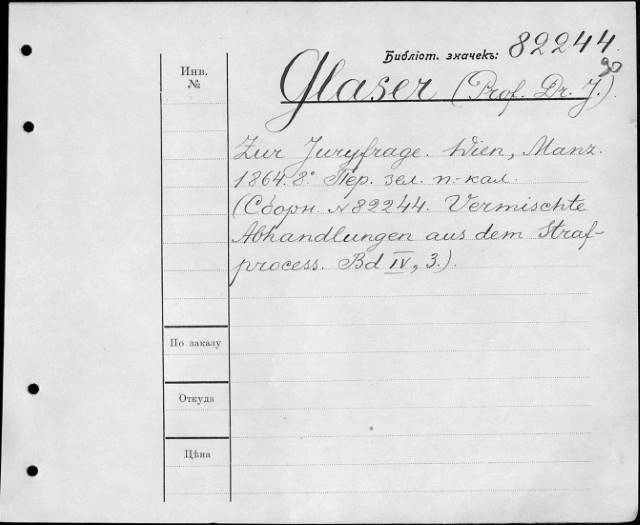 Библіот. значекъ: 82244.
Инв.
№
Glaser (Prof. Dr. J.).
Zur Juryfrage. Wien, Manz.
1864. 8° Пер. зел. п.-кал.
(Сборн. №82244. Vermischte
Abhandlungen aus dem Straf-
process. Bd IV, 3.).
По заказу
Откуда
Цѣна